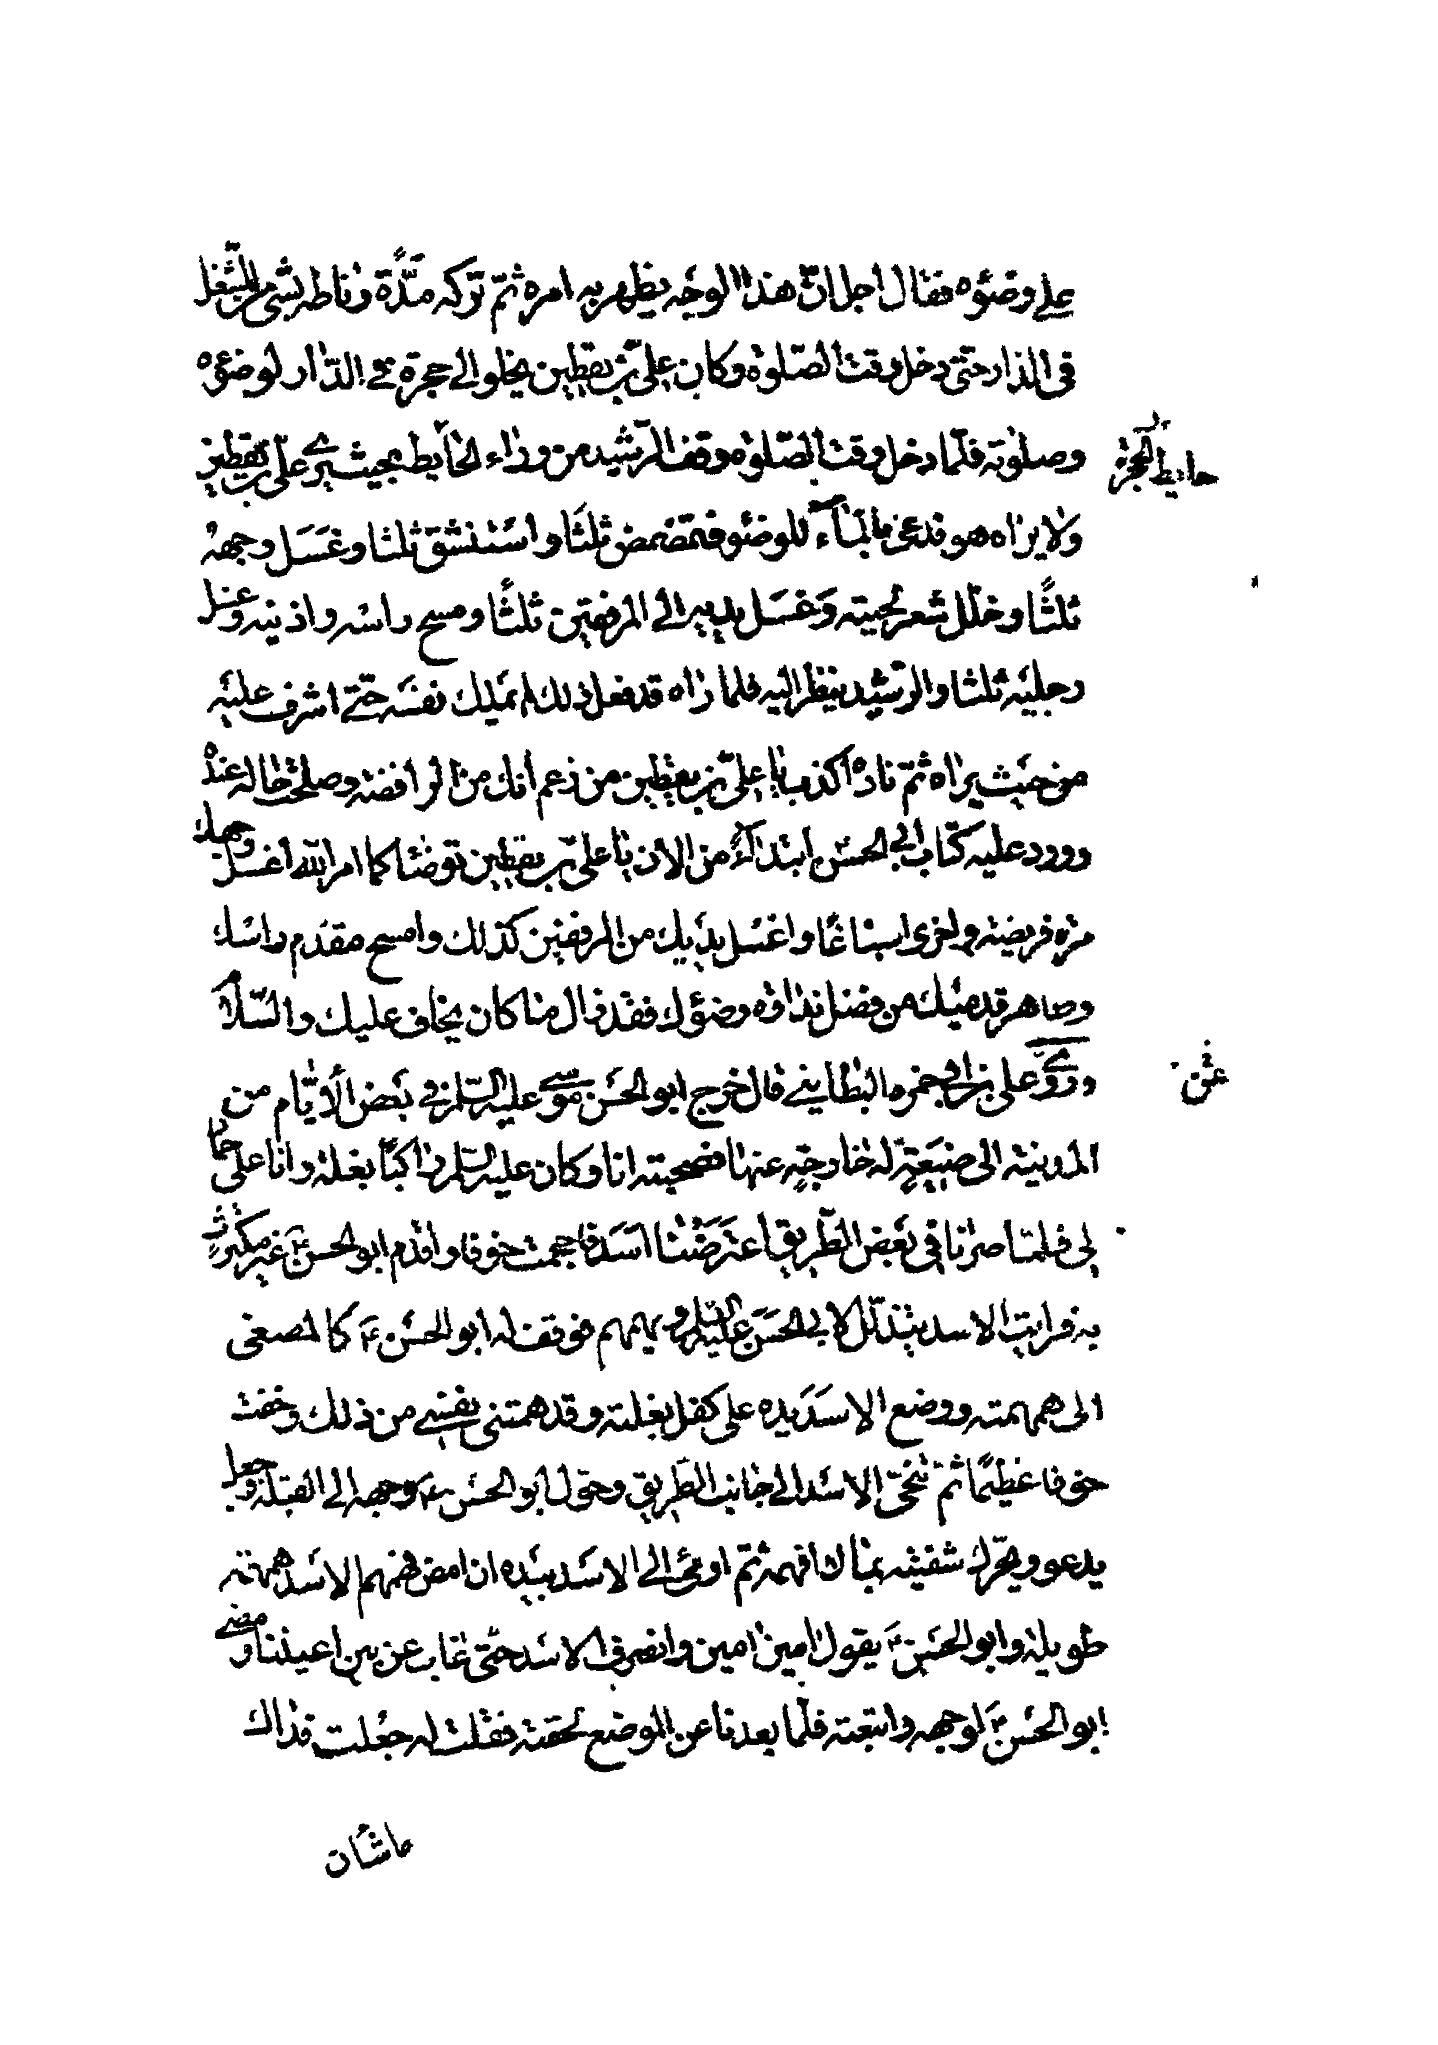 علي وضوئه فقال اجل انّ هذا الوجه يظهر به امره ثمّ تركه مدّة وناطه بشئ من الشغل
في الدار حتى دخل وقت الصّلوة وكان علي بن يقطين يخلو الي حجرة في الدّار لوضوئه
وصلوته فلمّا دخل وقت الصّلوة وقف الرّشيد من وراء الحايط بحيث يرى علي بن يقطين
حايط الحجرة
ولا يراه هو فدعى بالمآء للوضوء فتمضمض ثلثا واستنشق ثلثا وغسل وجهه
ثلثًا وخلّل شعر لحيته وغسل يديه الى المرفقين ثلثًا ومسح راسه واذنيه وغسل
رجليه ثلثا والرّشيد ينظر اليه فلما راه قد فعل ذلك لم يملك نفسه حتّى اشرف عليه
من حيث يراه ثمّ ناداه كذب يا علي بن يقطين من زعم انك من الرافضة وصلحت حاله عنده
وورد عليه كتاب ابي الحسن ابتداءً من الان يا علي بن يقطين توضا كما امر الله اغسل وجهك
مرة فريضة واخرى اسباغًا واغسل يديك من المرفقين كذلك وامسح مقدم راسك
وظاهر قدميك من فضل نداوة وضوئك فقد زال ما كان يخاف عليك والسّلام
وروى علي بن ابي حمزه البطايني قال خرج ابو الحسن موسى عليه السلم في بعض الايّام من
عن
المدينة الى ضيعة له خارجة عنها فصحبته انا وكان عليه السلم راكبًا بغلة وانا على حمار
لي فلما صرنا في بعض الطّريق اعترضنا اسد فاحجمت خوفا واقدم ابو الحسن ع غير مكترث
به فرايت الاسد يتذلّل لابي الحسن عليه السلم ويهمهم فوقف له ابو الحسن ع كالمصغي
الى همهمته ووضع الاسد يده على كفل بغلته وقد همتني نفسي من ذلك وخفت
خوفا عظيمًا ثم تنحّى الاسد الى جانب الطّريق وحوّل ابو الحسن ع وجهه الى القبلة وجعل
يدعو ويحرّك شفتيه بما لا افهمه ثمّ اومئ الى الاسد بيده ان امض فهمهم الاسد همهمة
طويلة وابو الحسن ع يقول امين امين وانصرف الاسد حتّى غاب عن بين اعيننا ومضى
ابو الحسن ع لوجهه واتبعته فلمّا بعدنا عن الموضع لحقته فقلت له جعلت فداك
ما شان